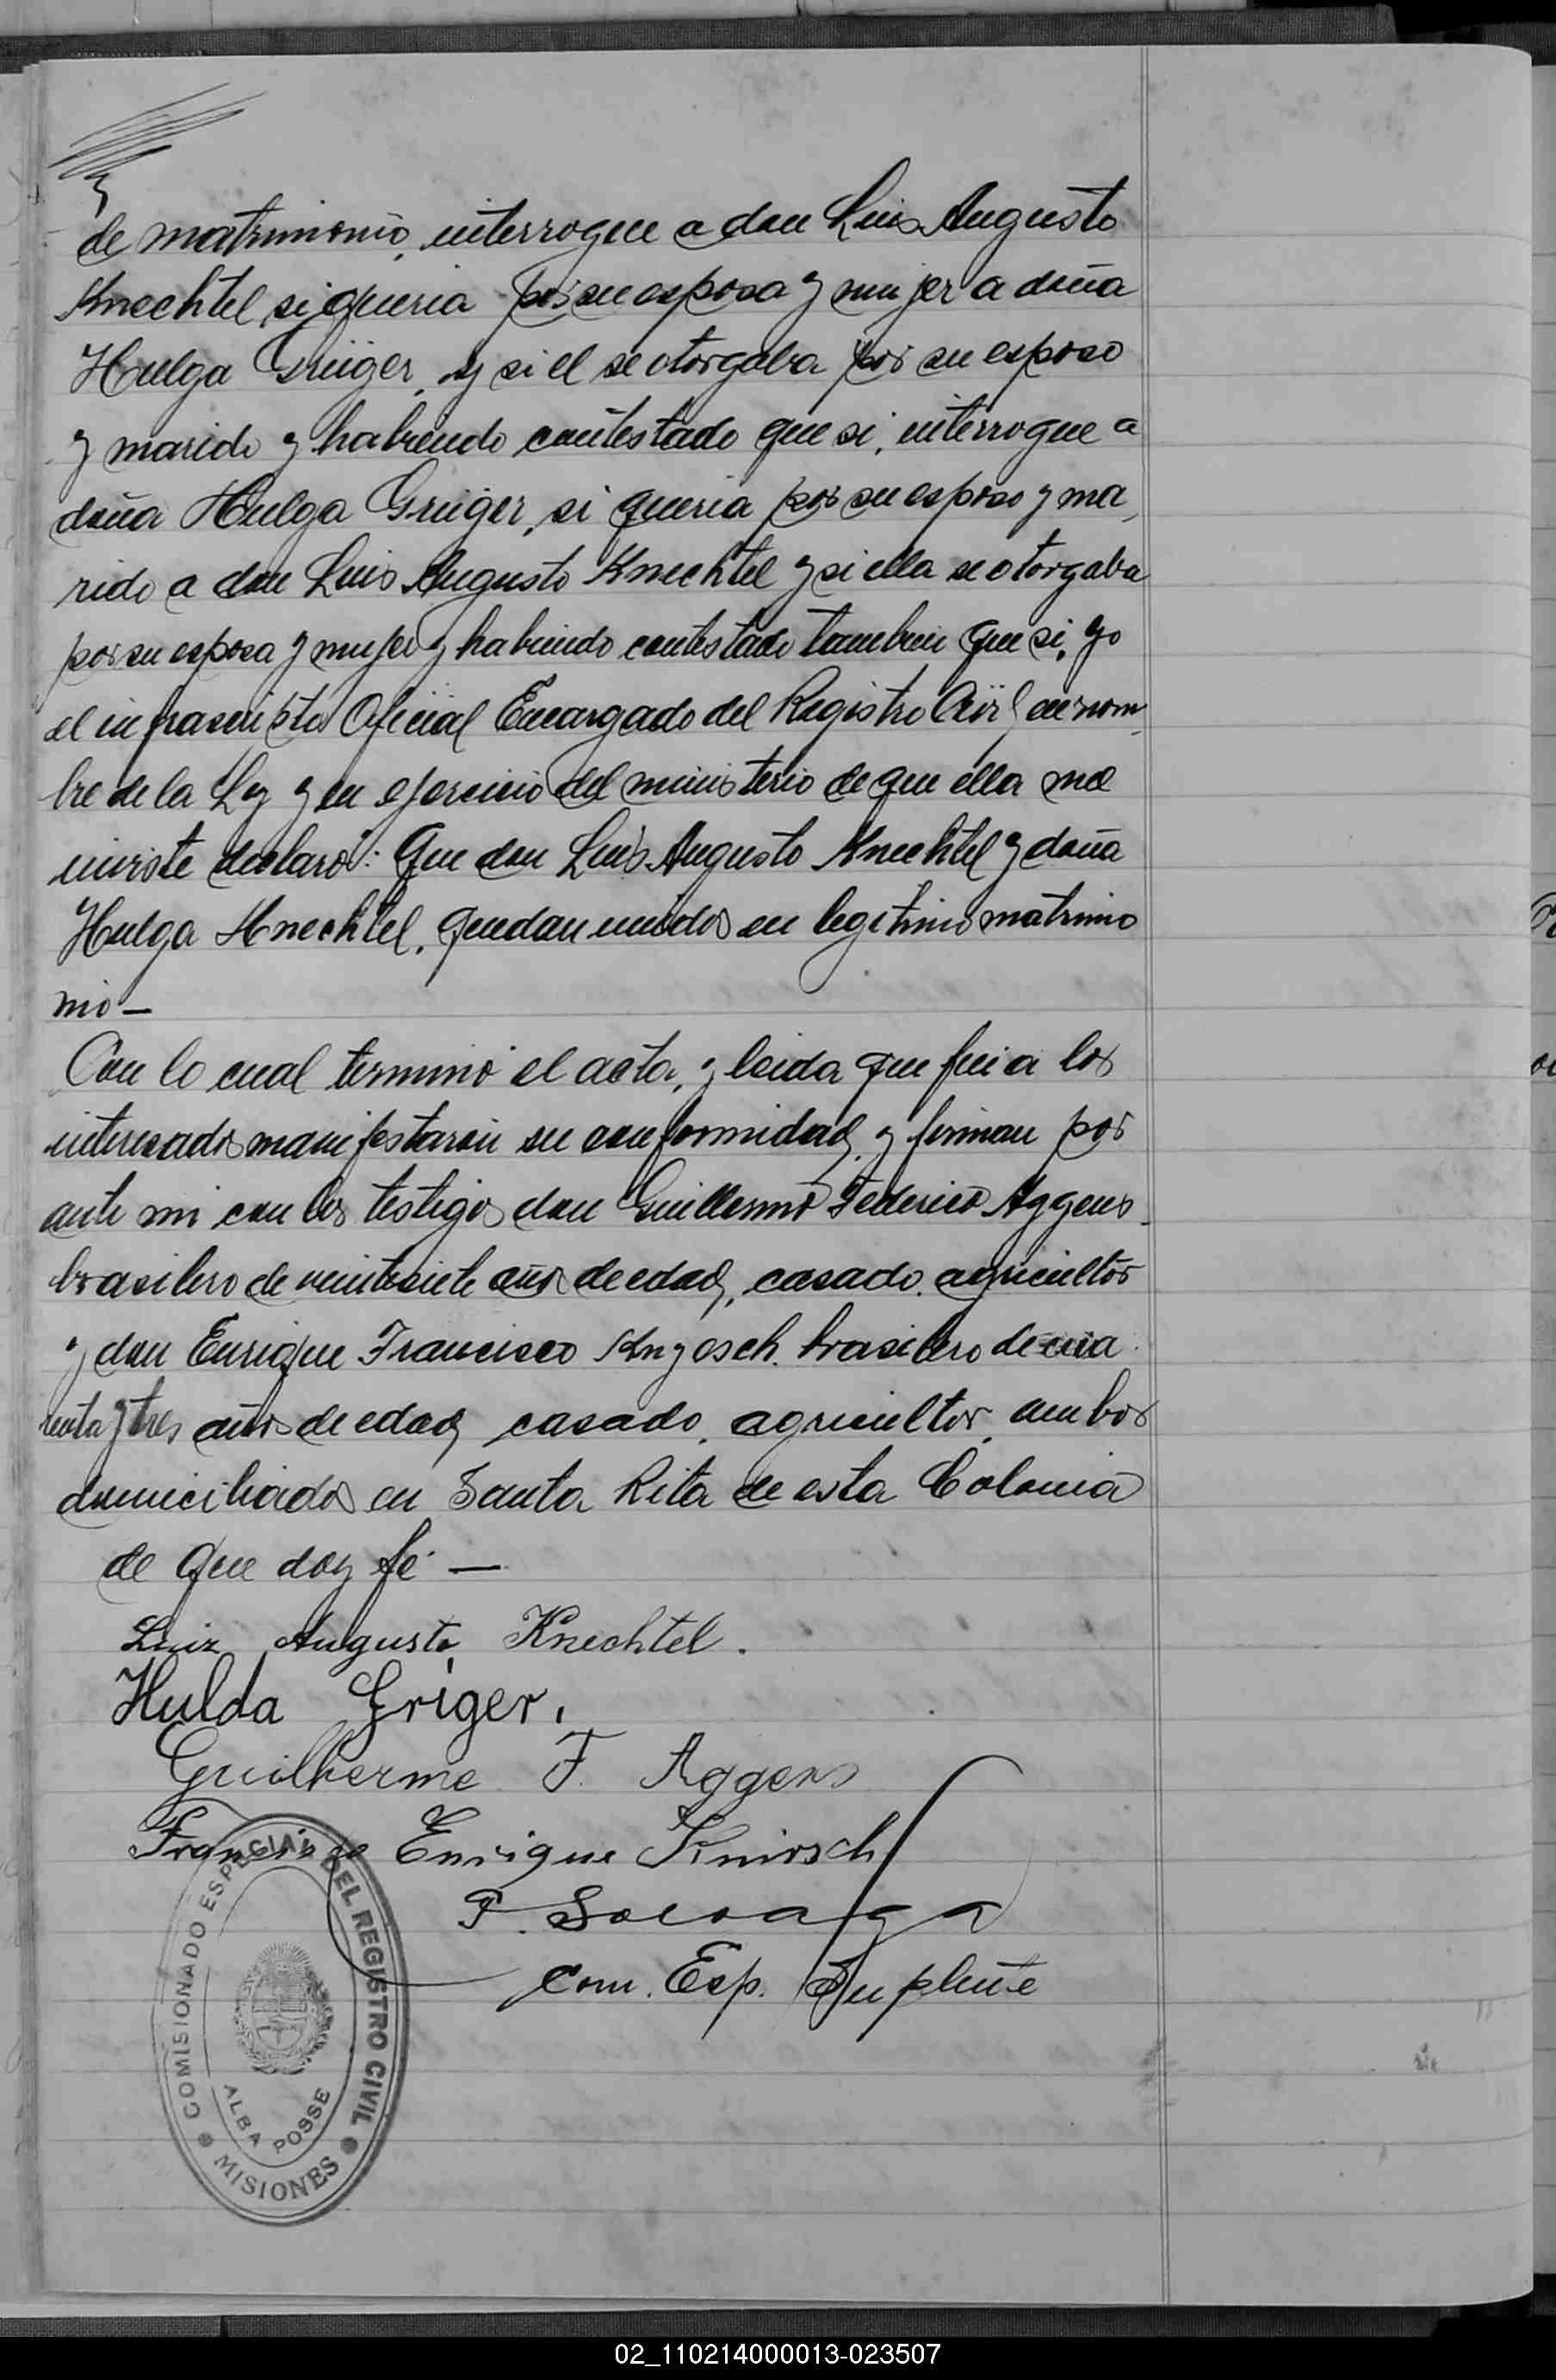 de matrimonio, interrogue a don Luis Augusto
Knechtel, si queria por su esposa y mujer a doña
Hulga Grüiger, y si el se otorgaba por su esposo
y marido y habiendo contestado que si, interrogue a
doña Hulga Grüiger, si queria por su esposo y ma
rido a don Luis Augusto Knechtel y si ella se otorgaba
por su esposa y mujer y habiendo contestado tambien que si, yo
el infrascripto Oficial Encargado del Registro Civil en nom
bre de la Ley y en ejercicio del ministerio de que ella me
inviste declaro: Que don Luis Augusto Knechtel y doña
Hulga Knechtel, quedan unidos en legitimo matrimo
nio —
Con lo cual terminó el acta, y leida que fué a los
interesados manifestaron su conformidad, y firman por
ante mi con los testigos don Guillermo Federico Aggens
brasilero de veintesiete años de edad, casado, agricultor
y don Enrique Francisco Knyosch, brasilero de cua
renta y tres años de edad, casado, agricultor, ambos
domiciliados en Santa Rita de esta Colonia
de que doy fé —
Luiz Augusto Knechtel.
Hulda Griger.
Guilherme F. Aggens
Francisco Enrique Knirsch
Com. Esp. Suplente
COMISIONADO ESPECIAL DEL REGISTRO CIVIL
ALBA POSSE
MISIONES
02_110214000013-023507